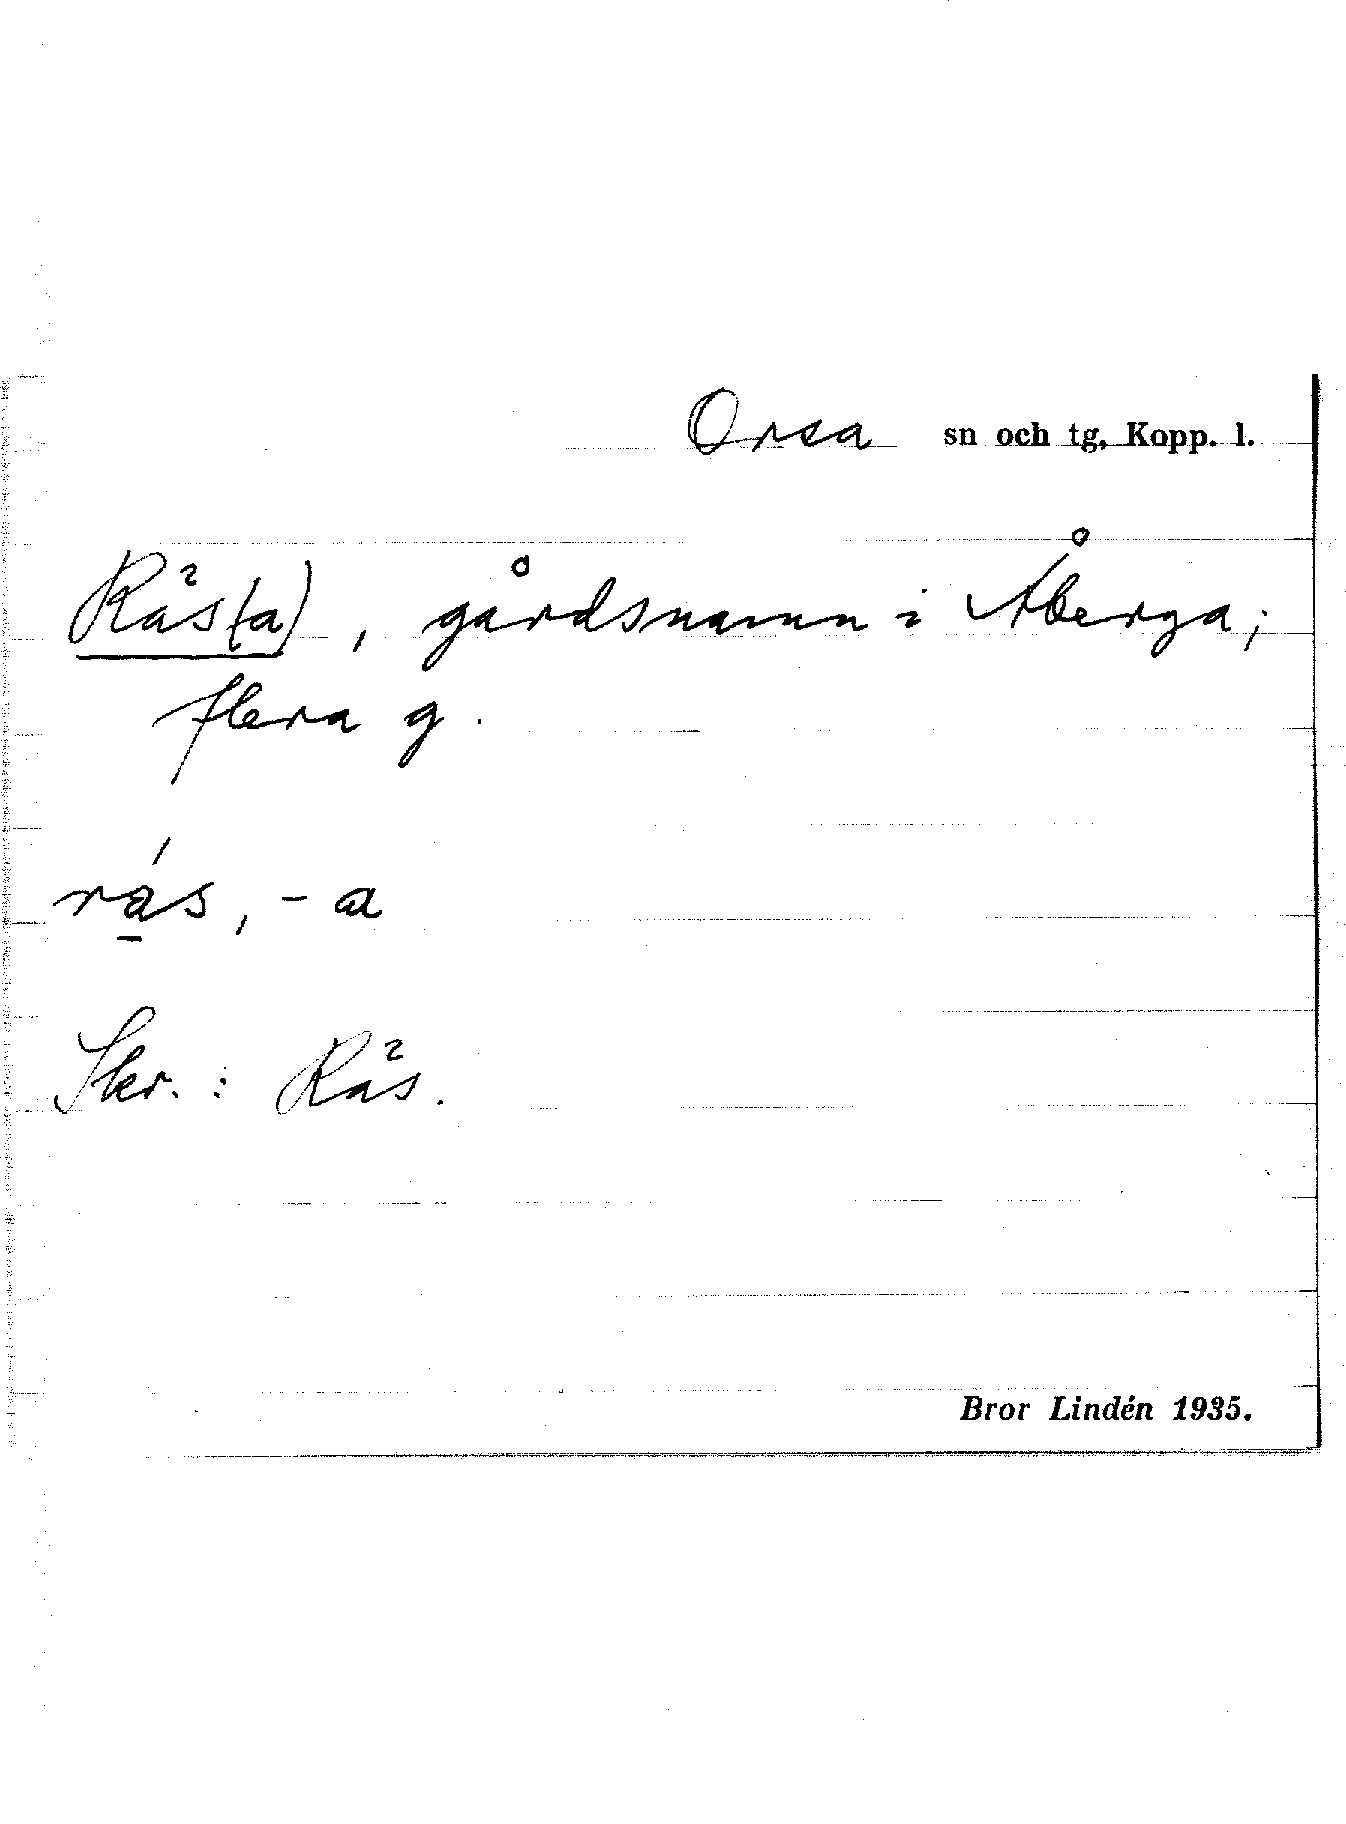 Orsa sn och tg, Kopp. l.
Rås(a), gårdsnamn i Åberga;
flera g.
rás, -a
Skr.: Rås.
Bror Lindén 1935.